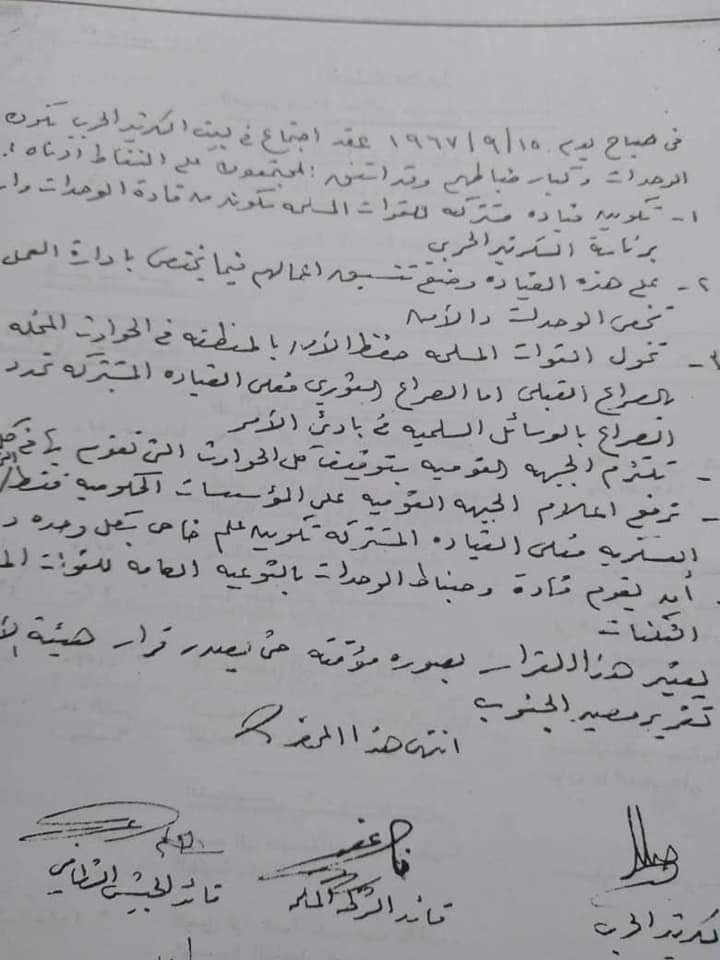 في صباح يوم ١٩٦٧/٩/١٥ عقد اجتماع في بيت السكرتير الحربي تكون
الوحدات وكبار ضباطهم وقد اتفق المجتمعون على النقاط ادناه :
١- تكوين قياده مشتركه للقوات المسلحه تتكون من قادة الوحدات
برئاسة السكرتير الحربي
٢- على هذه القيادة وضع تنسيق اعمالهم فيما يختص بادارة العمل
تخص الوحدات والأمن
٣- تخول القوات المسلحه حفظ الأمن بالمنطقه في الحوادث المخله
بالصراع القبلي اما الصراع الثوري فعلى القياده المشتركه تحدد
الصراع بالوسائل السلميه في بادئ الأمر
- تلتزم الجبهه القوميه بتوقيف كل الحوادث التي تقوم بها في
- ترفع اعلام الجبهه القوميه على المؤسسات الحكوميه فقط
العسكريه فعلى القياده المشتركه تكوين علم خاص بكل وحده
- أن يقوم قادة وضباط الوحدات بالتوعيه العامه للقوات
الثكنات
يعتبر هذا القرار بصوره مؤقته حتى يصدر قرار هيئة
تقرير مصير الجنوب
انتهى هذا المحضر
قائد الجيش النظامي
قائد الشرطه المسلحه
السكرتير الحربي